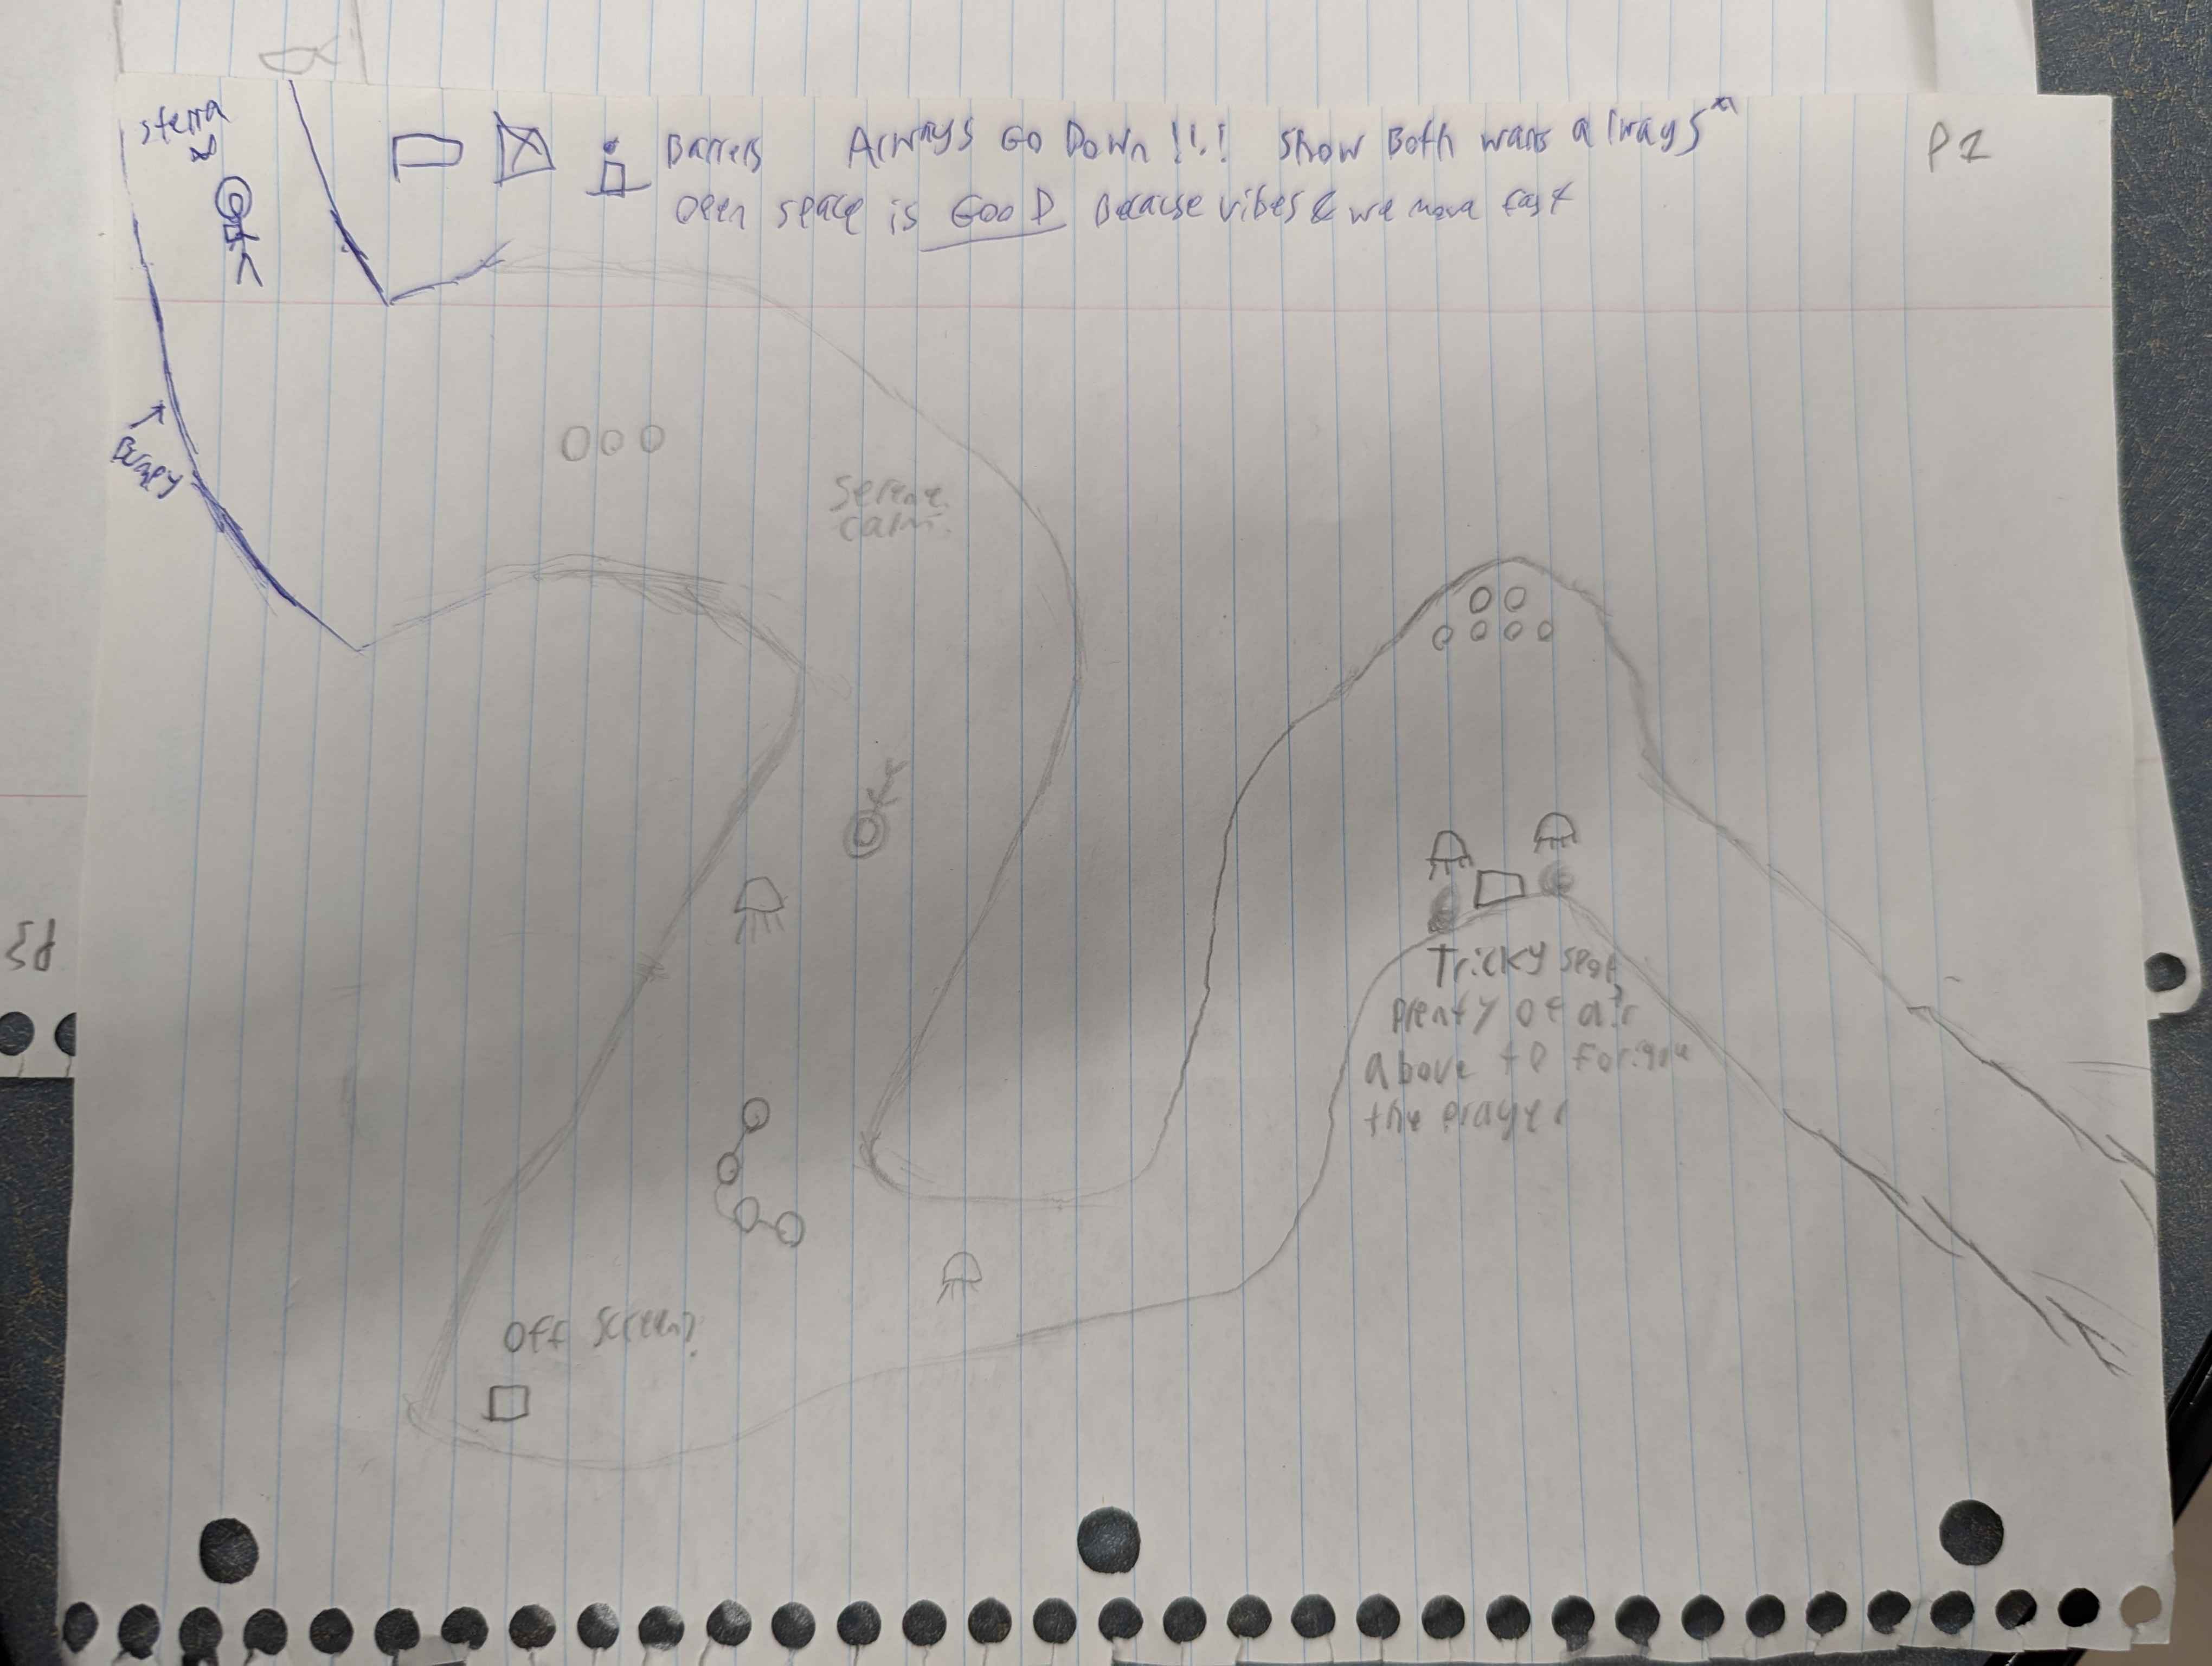 sterra
Barrels Always Go Down !!! Show Both walls always*
Open space is GOOD Because vibes & we move fast
P1
Serene
calm.
Tricky spot,
plenty of air
above to forigve
the player
Off screen?
P3